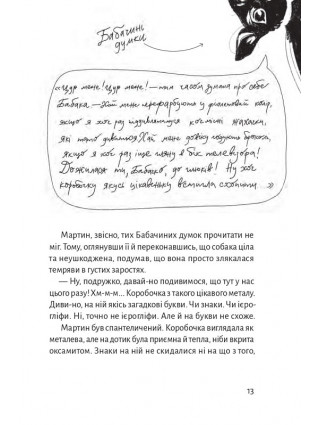 Бабачині
думки
«Цур мене! Цур мене! — тим часом думала про себе
Бабака. — Хай мене перефарбують у фіолетовий колір,
якщо я хоч раз
які
якщо я хоч раз іще гляну в бік телевізора!
Дожилася ти, Бабако, до глюків! Ну хоч
коробочку якусь цікавеньку встигла схопити...»
Мартин, звісно, тих Бабачиних думок прочитати не
міг. Тому, оглянувши її й переконавшись, що собака ціла
та неушкоджена, подумав, що вона просто злякалася
темряви в густих заростях.
— Ну, подружко, давай-но подивимося, що тут у нас
цього разу! Хм-м-м... Коробочка з такого цікавого металу.
Диви-но, на ній якісь загадкові букви. Чи знаки. Чи ієро-
гліфи. Ні, точно не ієрогліфи. Але й на букви не схоже.
Мартин був спантеличений. Коробочка виглядала як
металева, але на дотик була приємна й тепла, ніби вкрита
оксамитом. Знаки на ній не скидалися ні на що з того,
13